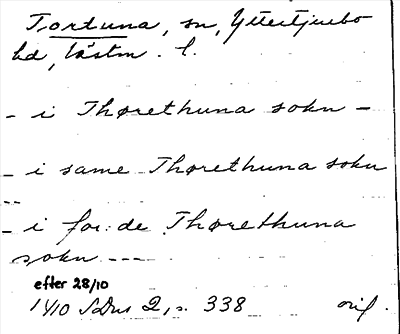 Tortuna, sn, Yttertjurbo
hd, Västm. l.
- i Thørethuna sokn -
- i same Thørethuna sokn
--
- i for: de Thørethuna
sokn ---
efter 28/10
1410 SDns 2, s. 338 orig.